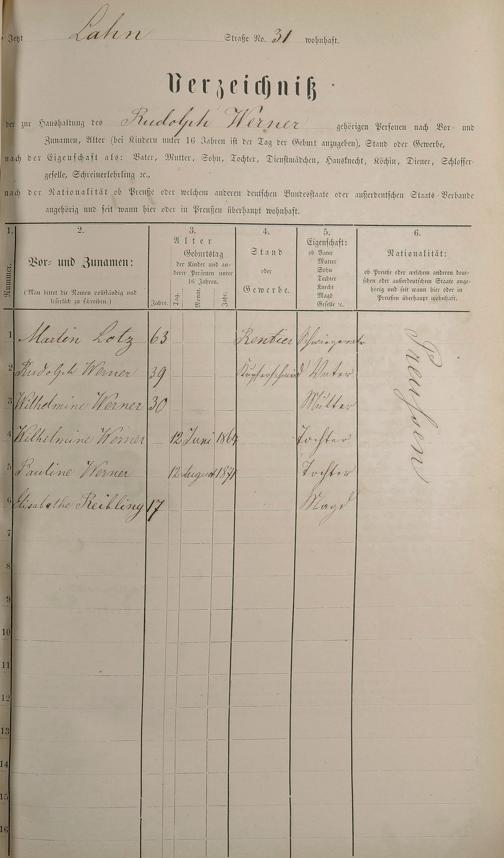 Jetzt Lahn Straße No. 31 wohnhaft.
Verzeichniß
der zur Haushaltung des Rudolph Werner gehörigen Personen nach Vor- und
Zunamen, Alter (bei Kindern unter 16 Jahren ist der Tag der Geburt anzugeben), Stand oder Gewerbe,
nach der Eigenschaft als: Vater, Mutter, Sohn, Tochter, Dienstmädchen, Hausknecht, Köchin, Diener, Schlosser-
geselle, Schreinerlehrling ꝛc.,
nach der Nationalität ob Preuße oder welchem anderen deutschen Bundesstaate oder außerdeutschen Staats-Verbande
angehörig und seit wann hier oder in Preußen überhaupt wohnhaft.
1. 2. 3. 4. 5. 6.
Nummer.
Vor- und Zunamen:
(Man bittet die Namen vollständig und
leserlich zu schreiben.)
Alter
Geburtstag
der Kinder und an-
derer Personen unter
16 Jahren.
Jahre. Tag. Monat. Jahr.
Stand
oder
Gewerbe.
Eigenschaft:
ob Vater
Mutter
Sohn
Tochter
Knecht
Magd
Geselle ꝛc.
Nationalität:
ob Preuße oder welchem anderen deut-
schen oder außerdeutschen Staate ange-
hörig und seit wann hier oder in
Preußen überhaupt wohnhaft.
1 Martin Lotz 63 Rentier
2 Rudolph Werner 39 Kupferschmied Vater
3 Wilhelmine Werner 30 Mutter
4 Wilhelmine Werner 12 Juni Tochter
5 Pauline Werner 12 August 1871 Tochter
6 Elisabethe Reibling 17 Magd
Preußen
7
8
9
10
11
12
13
14
15
16